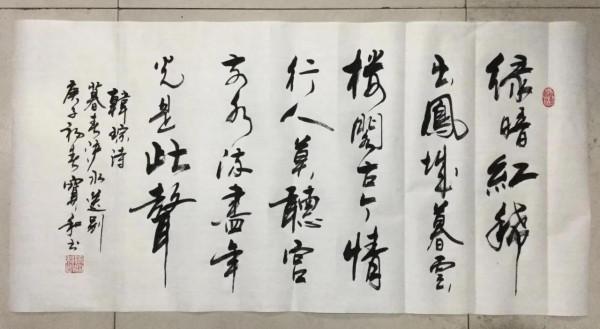 绿暗紅稀
出鳳城暮雲
楼閣古今情
行人莫聽宮
前水流盡年
光是此聲
韓琮诗
暮春浐水送别
庚子初春寶和书